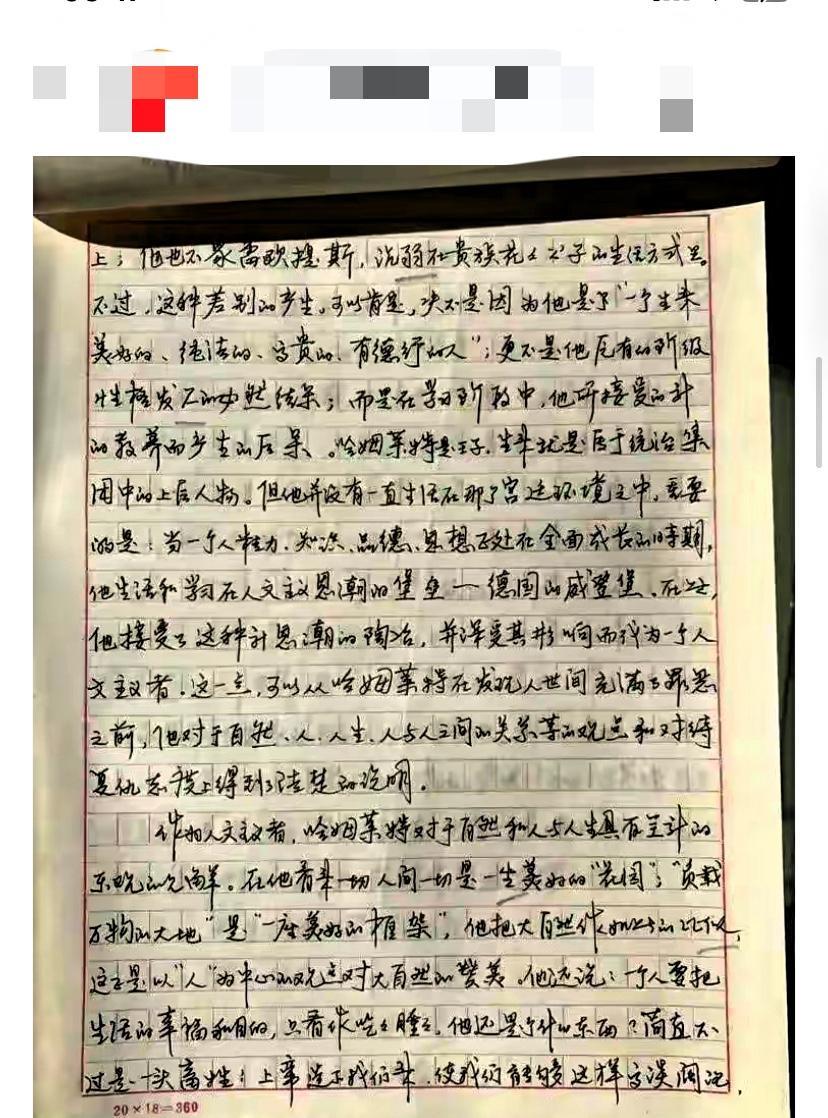 上；他也不象雷欧提斯，沉弱在贵族花々公子的生活方式里。
不过，这种差别的产生，可以肯定，决不是因为他是了"一个生来
美好的、纯洁的、高贵的、有德行的人"；更不是他原有的阶级
性格发展的必然结果；而是在学习阶段中，他所接受的
的教养而产生的后果。哈姆莱特是王子，生来就是居于统治集
团中的上层人物。但他并没有一直生活在那个宫廷环境之中，重要
的是：当一个人精力、知识、品德、思想正处在全面成长的時期，
他生活和学习在人文主义思潮的堡垒一德国的威登堡。在这，
他接受了这种思潮的陶冶，并深受其影响而成为一个人
文主义者。这一点，可以从哈姆莱特在发现人世间充满了罪恶
之前，他对于自然、人、人生、人与人之间的关系等的观点和对待
复仇态度上得到清楚的说明。
作为人文主义者，哈姆莱特对于自然和人与人生具有
在他看来一切人间一切是一座美好的"花园"；"负载
万物的大地"是"一座美好的框架"，他把大自然作如此的比似，
这正是以"人"为中心的观点对大自然的赞美。他还说：一个人要把
生活的幸福和目的，只看作吃々睡々，他还是个什么东西？简直不
过是一头畜牲！上帝造下我们来，使我们能够这样高谈阔论，
20×18=360